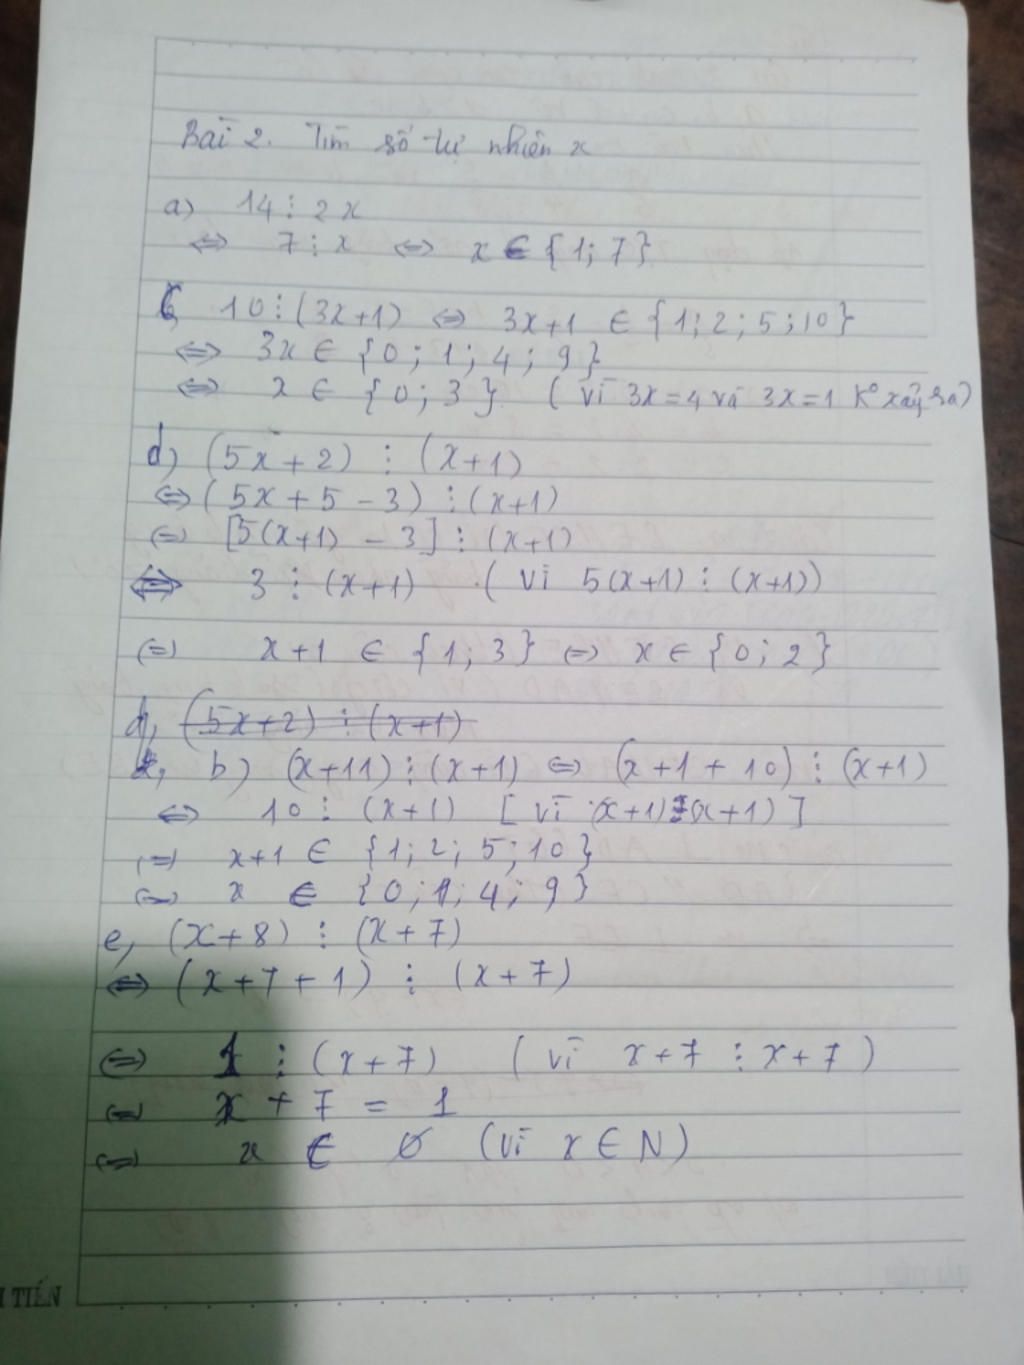 Bài 2. Tìm số tự nhiên x
a) 14 ⋮ 2x
⇔ 7 ⋮ x ⇔ x ∈ {1; 7}
c, 10 ⋮ (3x+1) ⇔ 3x+1 ∈ {1; 2; 5; 10}
⇔ 3x ∈ {0; 1; 4; 9}
⇔ x ∈ {0; 3} (vì 3x=4 và 3x=1 k° xảy ra)
d) (5x+2) ⋮ (x+1)
⇔ (5x+5-3) ⋮ (x+1)
⇔ [5(x+1) - 3] ⋮ (x+1)
⇔ 3 ⋮ (x+1) (vì 5(x+1) ⋮ (x+1))
⇔ x+1 ∈ {1; 3} ⇔ x ∈ {0; 2}
d, (5x+2) ⋮ (x+1)
b) (x+11) ⋮ (x+1) ⇔ (x+1+10) ⋮ (x+1)
⇔ 10 ⋮ (x+1) [vì (x+1) ⋮ (x+1)]
⇔ x+1 ∈ {1; 2; 5; 10}
⇔ x ∈ {0; 1; 4; 9}
e, (x+8) ⋮ (x+7)
⇔ (x+7+1) ⋮ (x+7)
⇔ 1 ⋮ (x+7) (vì x+7 ⋮ x+7)
⇔ x+7 = 1
⇔ x ∈ ∅ (vì x ∈ N)
TIẾN